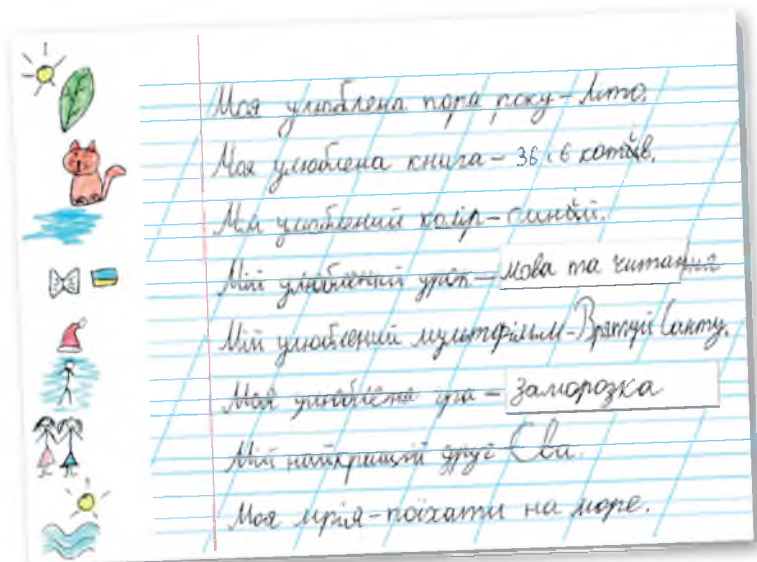 Моя улюблена пора року – літо.
Моя улюблена книга – 36 і 6 котів.
Мій улюблений колір – синій.
Мій улюблений урок – мова та читання
Мій улюблений мультфільм – Врятуй Санту.
Моя улюблена гра – заморозка
Мій найкращий друг Єва.
Моя мрія – поїхати на море.